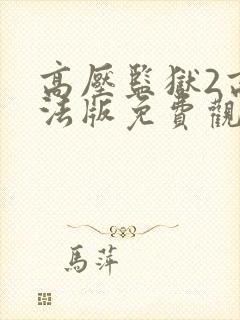 高壓監獄2高
法版免費觀
馬萍